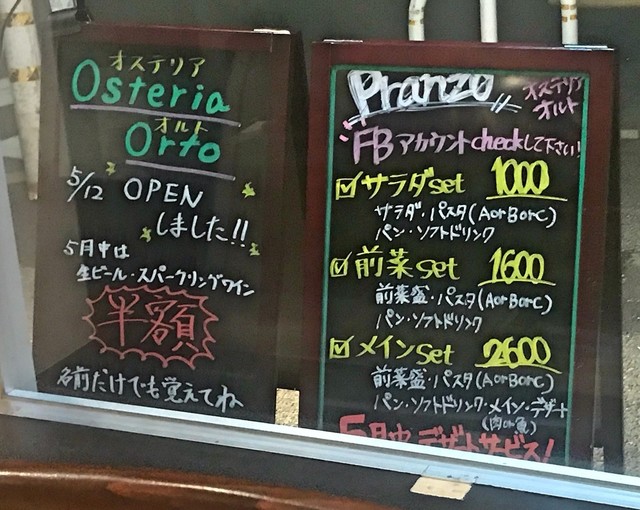 オステリア
Osteria
オルト
Orto
5/12 OPEN
しました!!
5月中は
生ビール・スパークリングワイン
半額
名前だけでも覚えてね
Pranzo
オステリア
オルト
FBアカウントcheckして下さい!
☑サラダset 1000
サラダ・パスタ(AorBorC)
パン・ソフトドリンク
☑前菜set 1600
前菜盛・パスタ(AorBorC)
パン・ソフトドリンク
☑メインset 2600
前菜盛・パスタ(AorBorC)
パン・ソフトドリンク・メイン・デザート
(肉or魚)
5月中デザートサービス!